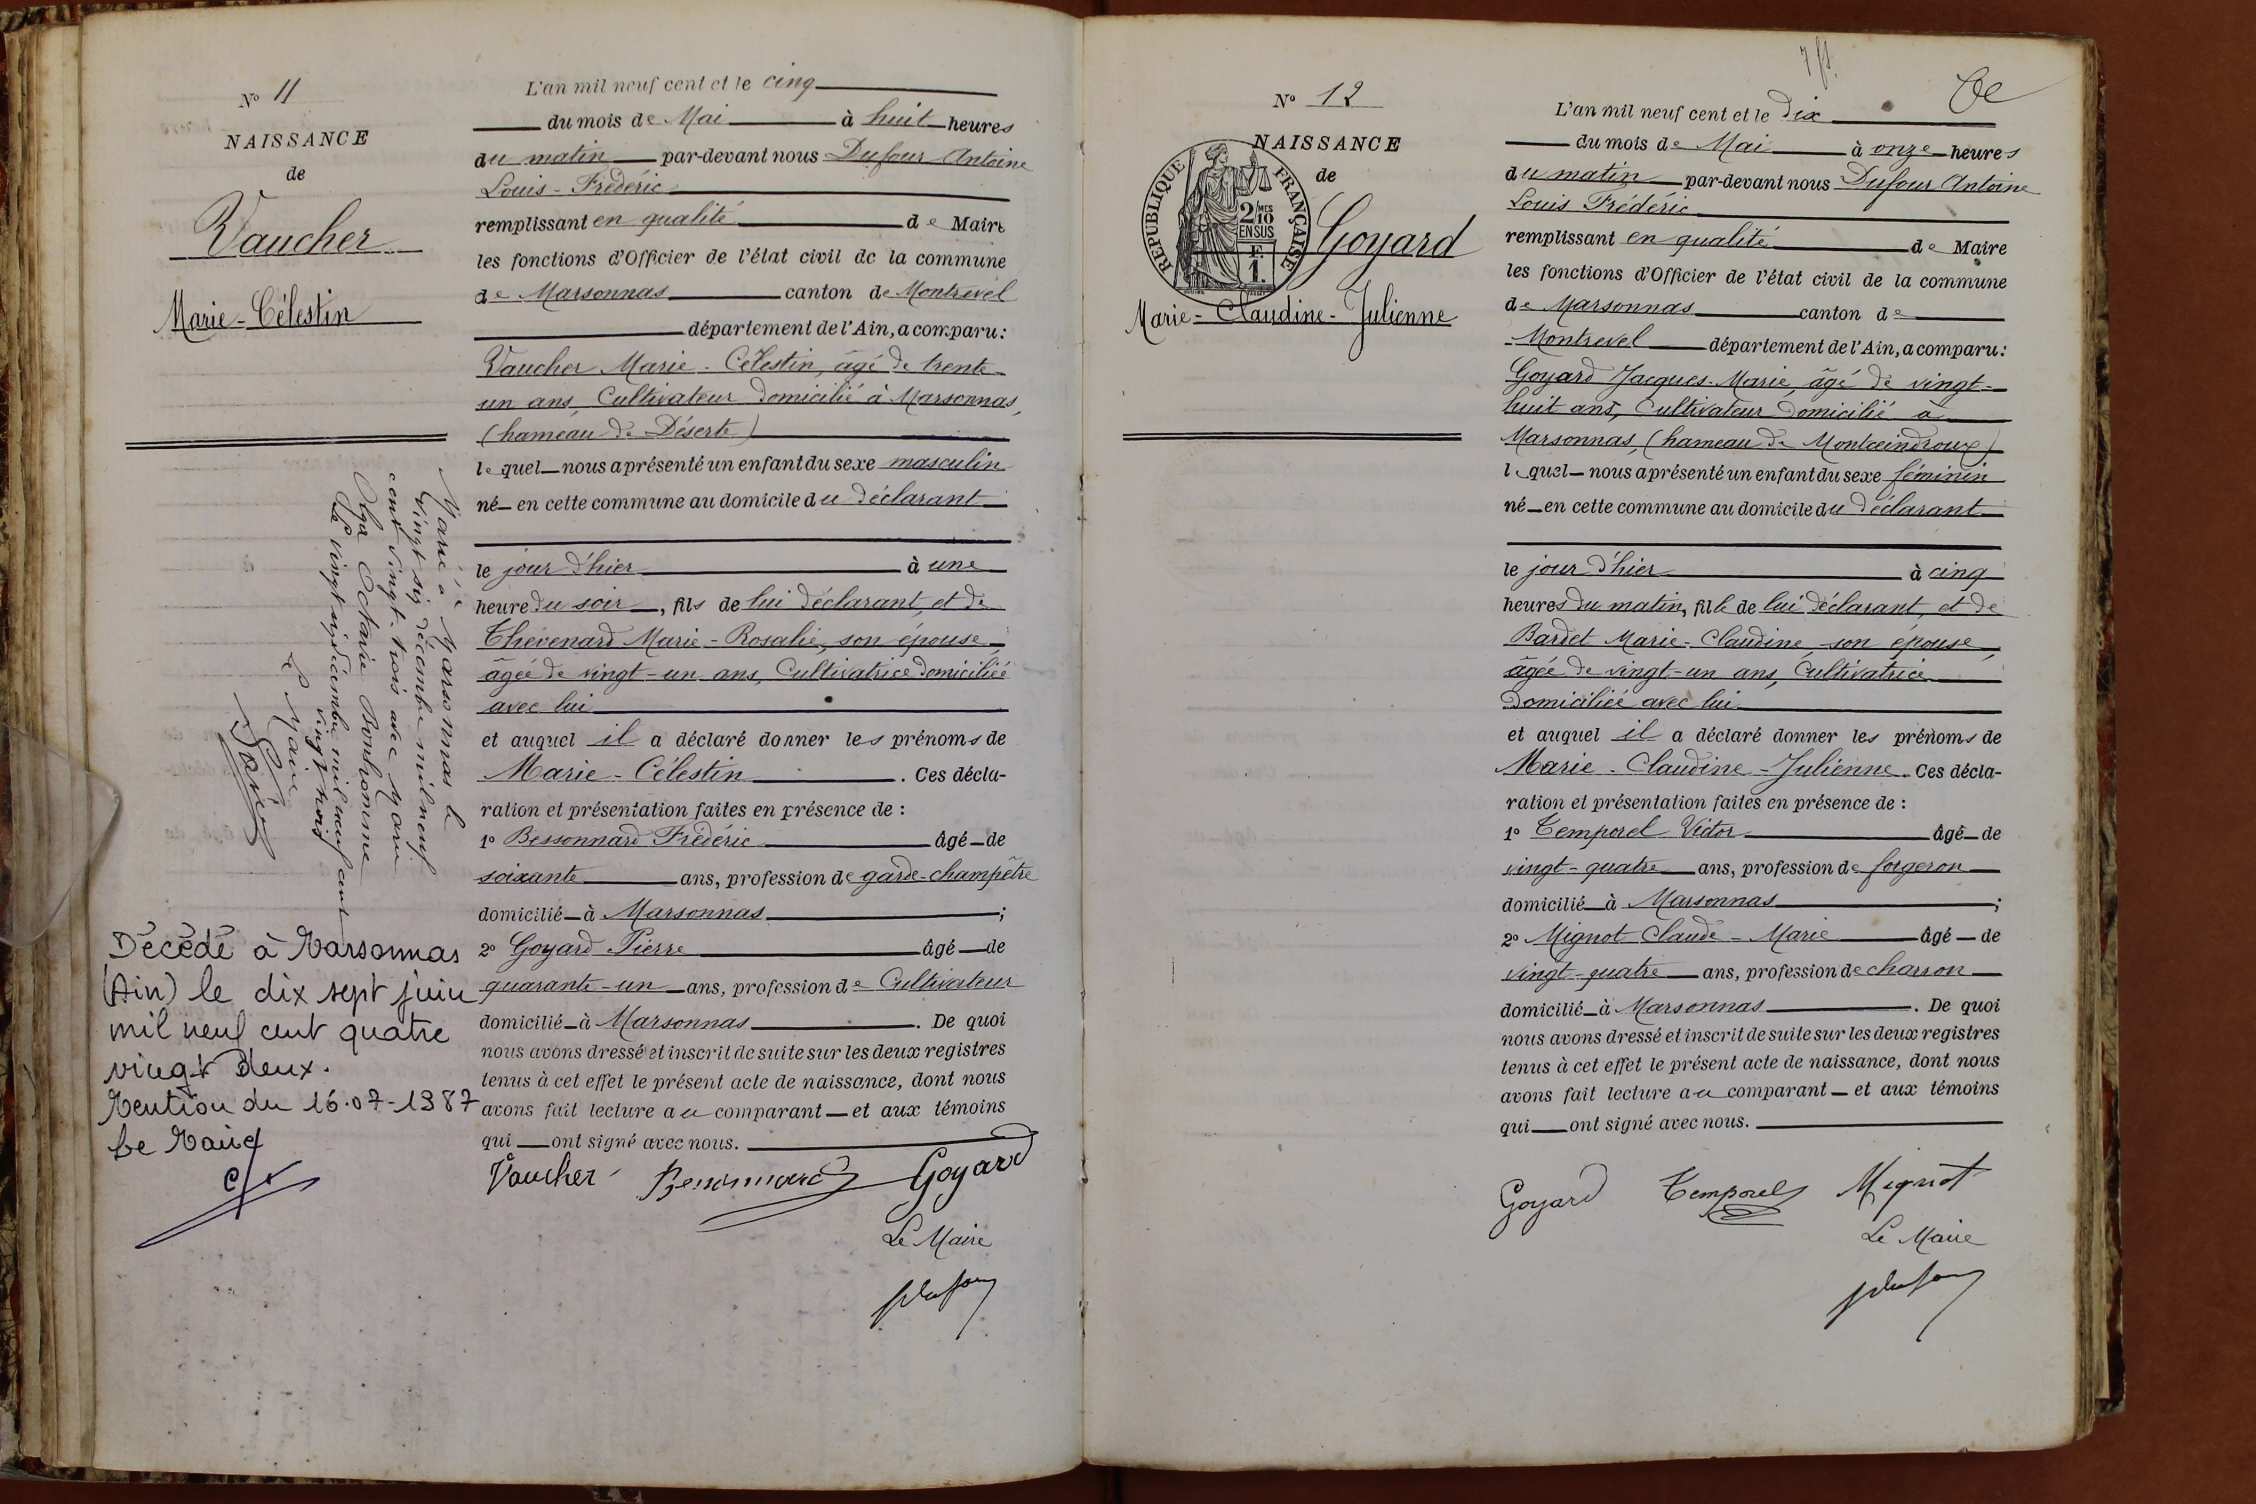 N° 11
NAISSANCE
de
Vaucher
Marie-Célestin
Marié à Marsonnas le
vingt six décembre mil neuf
cent vingt-trois avec Marie
Olga Octavie Bonhomme
Le vingt six décembre mil neuf cent
vingt trois
Le Maire
Décédé à Marsonnas
(Ain) le dix sept juin
mil neuf cent quatre
vingt deux.
Mention du 16-07-1987
Le Maire
L'an mil neuf cent et le cinq
du mois de Mai à huit heures
du matin par-devant nous Dufour Antoine
Louis-Frédéric
remplissant en qualité de Maire
les fonctions d'Officier de l'état civil de la commune
de Marsonnas canton de Montrevel
département de l'Ain, a comparu:
Vaucher Marie-Célestin, âgé de trente-
un ans, Cultivateur domicilié à Marsonnas,
(hameau de Déserte)
lequel nous a présenté un enfant du sexe masculin
né en cette commune au domicile du déclarant
le jour d'hier à une
heure du soir, fils de lui déclarant, et de
Thévenard Marie-Rosalie, son épouse,
âgée de vingt-un ans, Cultivatrice domiciliée
avec lui
et auquel il a déclaré donner les prénoms de
Marie-Célestin. Ces décla-
ration et présentation faites en présence de :
1° Bessonnard Frédéric âgé de
soixante ans, profession de garde-champêtre
domicilié à Marsonnas ;
2° Goyard Pierre âgé de
quarante-un ans, profession de Cultivateur
domicilié à Marsonnas. De quoi
nous avons dressé et inscrit de suite sur les deux registres
tenus à cet effet le présent acte de naissance, dont nous
avons fait lecture au comparant et aux témoins
qui ont signé avec nous.
Vaucher Bessonnard Goyard
Le Maire
Dufour
7 ft.
N° 12
NAISSANCE
de
REPUBLIQUE FRANÇAISE
2/10 MES
EN SUS
F.
1.
Goyard
Marie-Claudine-Julienne
L'an mil neuf cent et le dix
du mois de Mai à onze heures
du matin par-devant nous Dufour Antoine
Louis Frédéric
remplissant en qualité de Maire
les fonctions d'Officier de l'état civil de la commune
de Marsonnas canton de
Montrevel département de l'Ain, a comparu:
Goyard Jacques-Marie, âgé de vingt-
huit ans, Cultivateur domicilié à
Marsonnas, (hameau de Montceindroux)
lequel nous a présenté un enfant du sexe féminin
né en cette commune au domicile du déclarant
le jour d'hier à cinq
heures du matin, fille de lui déclarant, et de
Bardet Marie-Claudine son épouse,
âgée de vingt-un ans, Cultivatrice
domiciliée avec lui
et auquel il a déclaré donner les prénoms de
Marie-Claudine-Julienne. Ces décla-
ration et présentation faites en présence de :
1° Temporel Victor âgé de
vingt-quatre ans, profession de forgeron
domicilié à Marsonnas ;
2° Mignot Claude-Marie âgé de
vingt-quatre ans, profession de charron
domicilié à Marsonnas. De quoi
nous avons dressé et inscrit de suite sur les deux registres
tenus à cet effet le présent acte de naissance, dont nous
avons fait lecture au comparant et aux témoins
qui ont signé avec nous.
Goyard Temporel Mignot
Le Maire
Dufour